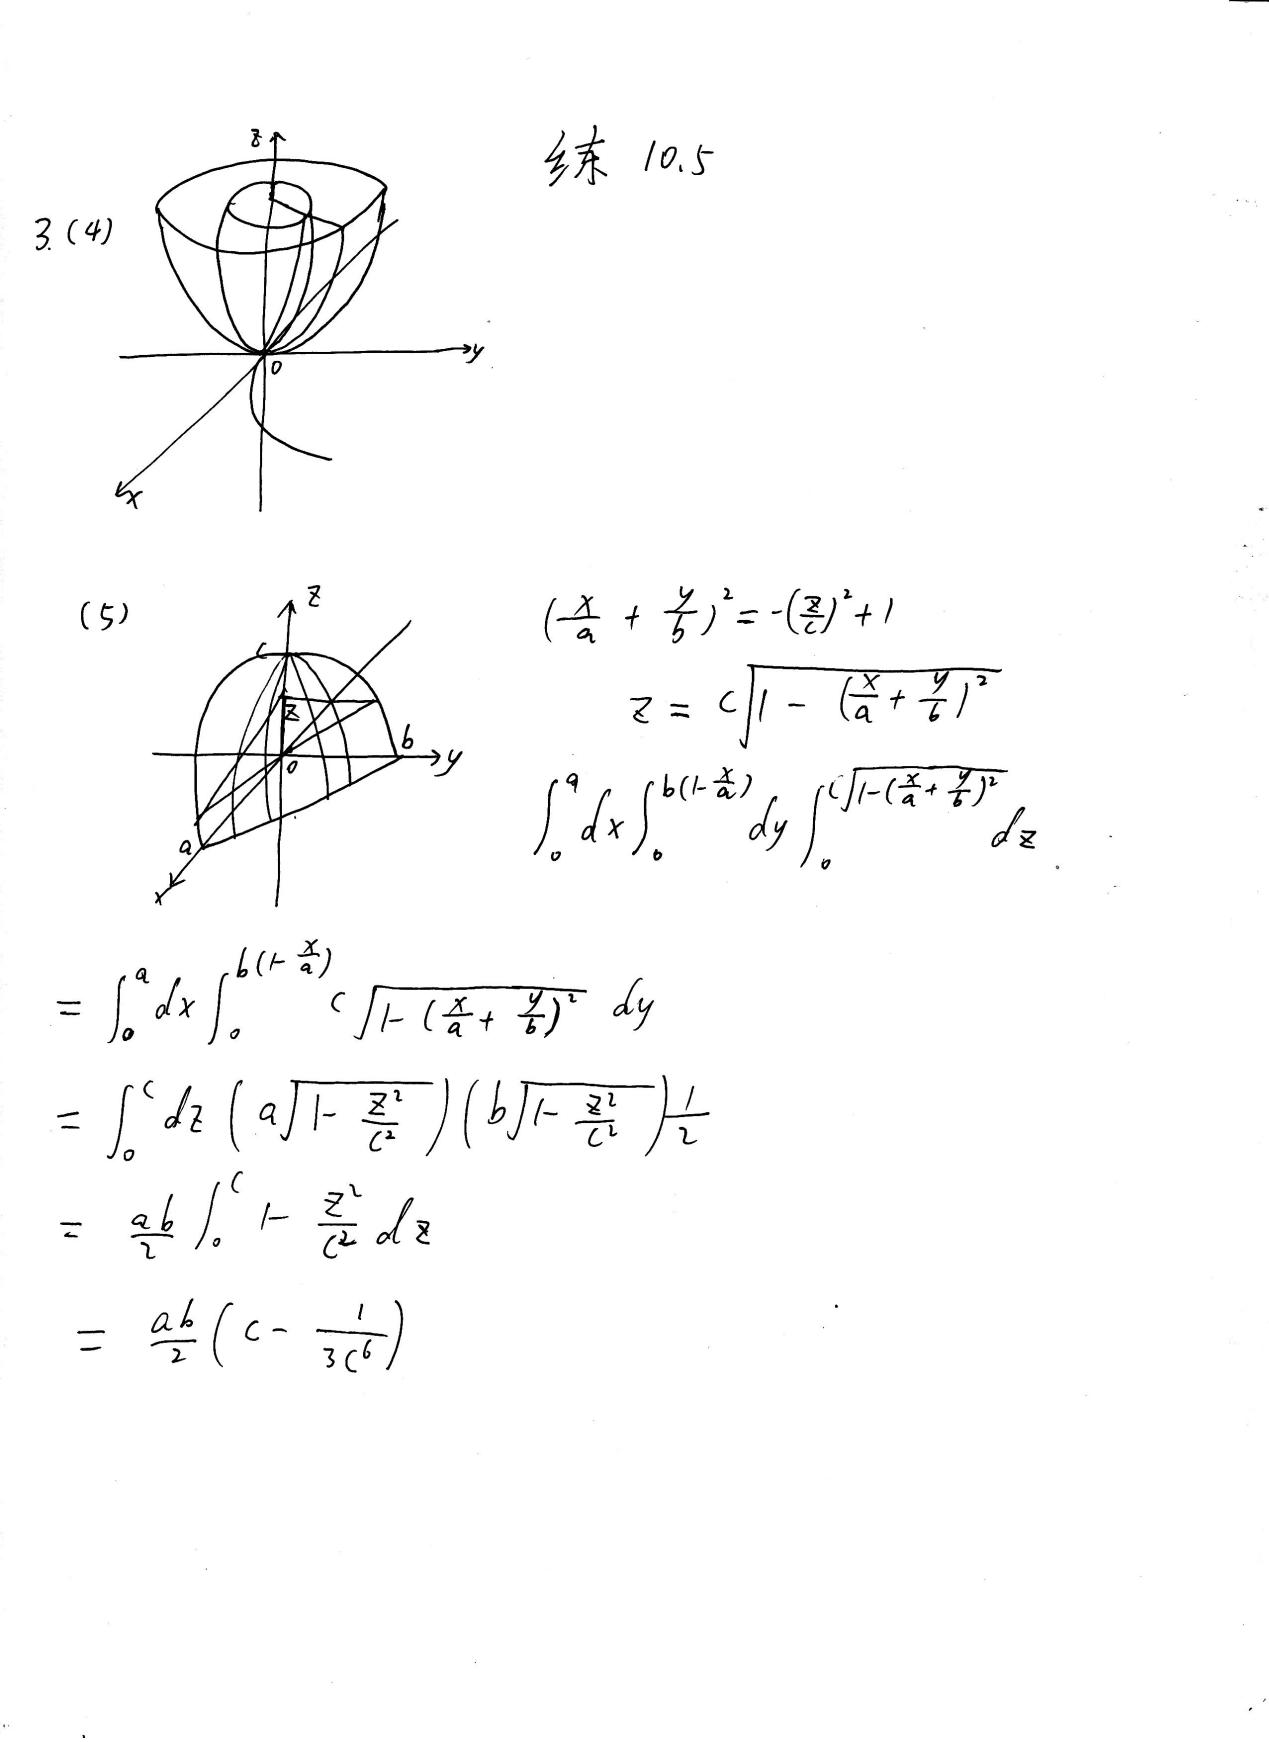 练 10.5
3.(4)
z
y
0
x
(5)
z
c
z
b
0
y
a
x
(x/a + y/b)² = -(z/c)² + 1
z = c√(1 - (x/a + y/b)²)
∫₀^a dx ∫₀^{b(1-x/a)} dy ∫₀^{c√(1-(x/a+y/b)²)} dz
= ∫₀^a dx ∫₀^{b(1-x/a)} c√(1-(x/a+y/b)²) dy
= ∫₀^c dz (a√(1-z²/c²))(b√(1-z²/c²)) 1/2
= ab/2 ∫₀^c 1- z²/c² dz
= ab/2 (c - 1/(3c⁶))